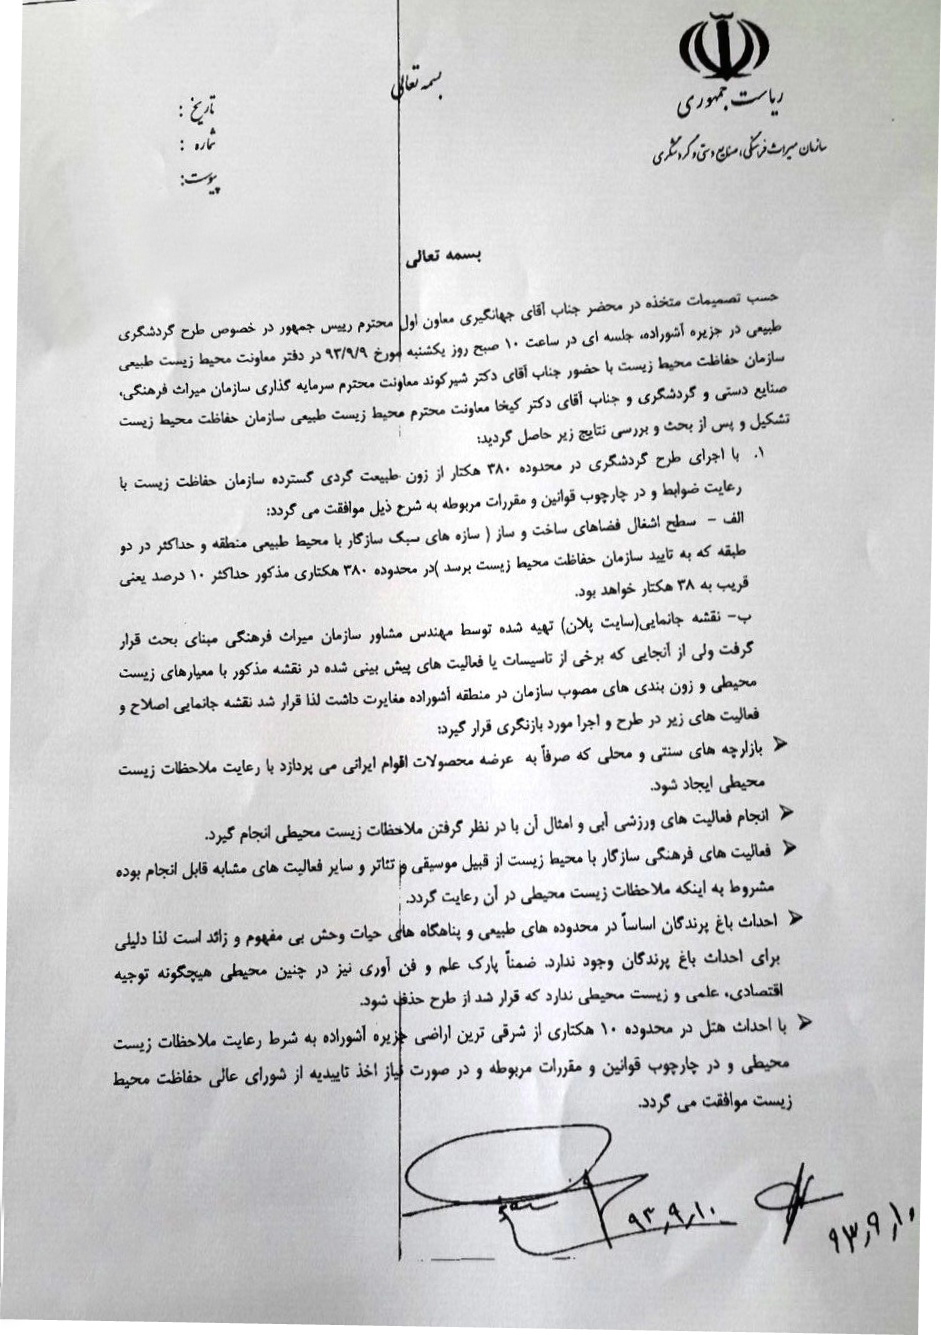 ریاست جمهوری
سازمان میراث فرهنگی، صنایع دستی و گردشگری
بسمه تعالی
تاریخ :
شماره :
پیوست:
بسمه تعالی
حسب تصمیمات متخذه در محضر جناب آقای جهانگیری معاون اول محترم رییس جمهور در خصوص طرح گردشگری
طبیعی در جزیره آشوراده، جلسه ای در ساعت ۱۰ صبح روز یکشنبه مورخ ۹۳/۹/۹ در دفتر معاونت محیط زیست طبیعی
سازمان حفاظت محیط زیست با حضور جناب آقای دکتر شیرکوند معاونت محترم سرمایه گذاری سازمان میراث فرهنگی،
صنایع دستی و گردشگری و جناب آقای دکتر کیخا معاونت محترم محیط زیست طبیعی سازمان حفاظت محیط زیست
تشکیل و پس از بحث و بررسی نتایج زیر حاصل گردید:
۱. با اجرای طرح گردشگری در محدوده ۳۸۰ هکتار از زون طبیعت گردی گسترده سازمان حفاظت زیست با
رعایت ضوابط و در چارچوب قوانین و مقررات مربوطه به شرح ذیل موافقت می گردد:
الف - سطح اشغال فضاهای ساخت و ساز ( سازه های سبک سازگار با محیط طبیعی منطقه و حداکثر در دو
طبقه که به تایید سازمان حفاظت محیط زیست برسد )در محدوده ۳۸۰ هکتاری مذکور حداکثر ۱۰ درصد یعنی
قریب به ۳۸ هکتار خواهد بود.
ب- نقشه جانمایی(سایت پلان) تهیه شده توسط مهندس مشاور سازمان میراث فرهنگی مبنای بحث قرار
گرفت ولی از آنجایی که برخی از تاسیسات یا فعالیت های پیش بینی شده در نقشه مذکور با معیارهای زیست
محیطی و زون بندی های مصوب سازمان در منطقه آشوراده مغایرت داشت لذا قرار شد نقشه جانمایی اصلاح و
فعالیت های زیر در طرح و اجرا مورد بازنگری قرار گیرد:
➢ بازارچه های سنتی و محلی که صرفاً به عرضه محصولات اقوام ایرانی می پردازد با رعایت ملاحظات زیست
محیطی ایجاد شود.
➢ انجام فعالیت های ورزشی آبی و امثال آن با در نظر گرفتن ملاحظات زیست محیطی انجام گیرد.
➢ فعالیت های فرهنگی سازگار با محیط زیست از قبیل موسیقی و تئاتر و سایر فعالیت های مشابه قابل انجام بوده
مشروط به اینکه ملاحظات زیست محیطی در آن رعایت گردد.
➢ احداث باغ پرندگان اساساً در محدوده های طبیعی و پناهگاه های حیات وحش بی مفهوم و زائد است لذا دلیلی
برای احداث باغ پرندگان وجود ندارد. ضمناً پارک علم و فن آوری نیز در چنین محیطی هیچگونه توجیه
اقتصادی، علمی و زیست محیطی ندارد که قرار شد از طرح حذف شود.
➢ با احداث هتل در محدوده ۱۰ هکتاری از شرقی ترین اراضی جزیره آشوراده به شرط رعایت ملاحظات زیست
محیطی و در چارچوب قوانین و مقررات مربوطه و در صورت نیاز اخذ تاییدیه از شورای عالی حفاظت محیط
زیست موافقت می گردد.
۹۳٫۹٫۱۰
۹۳٫۹٫۱۰